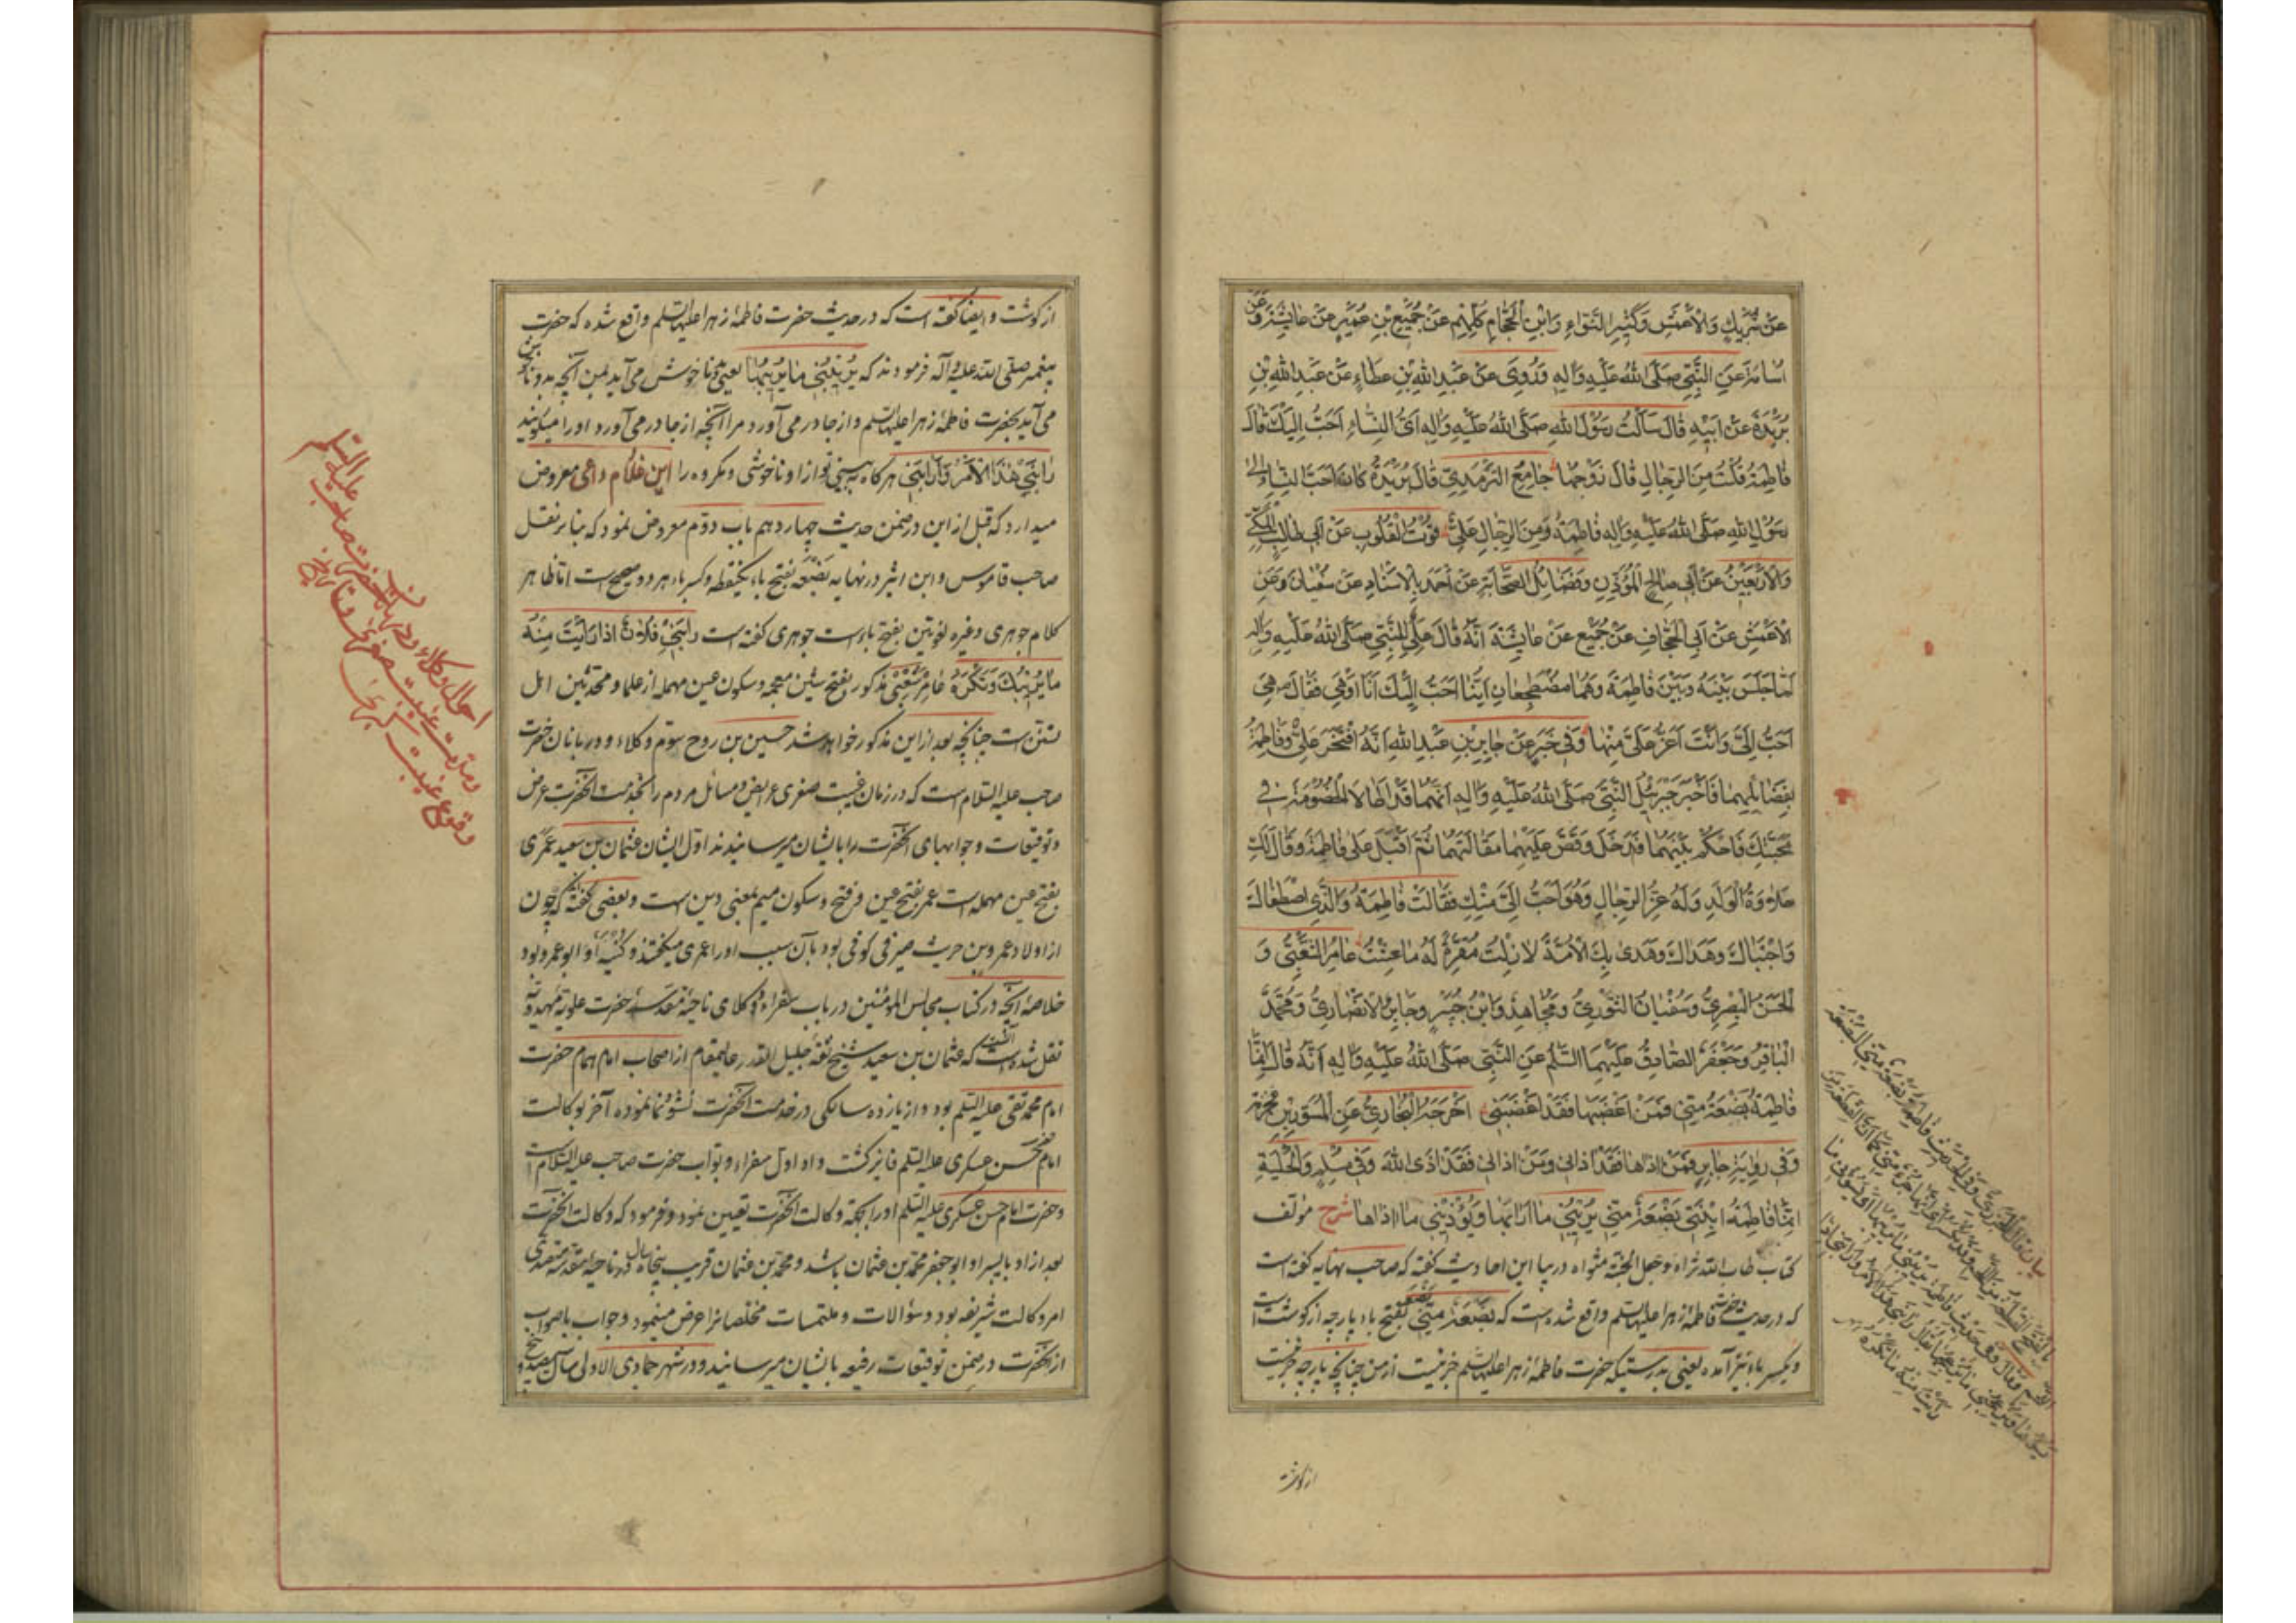 عَنْ شَرِيكٍ وَالْأَعْمَشِ وَكَثِيرِ النَّوَّاءِ وَابْنِ الْحَجَّامِ كُلِّهِمْ عَنْ جُمَيْعِ بْنِ عُمَيْرٍ عَنْ عَايِشَةَ وَعَنْ
اُسَامَةَ عَنِ النَّبِيِّ صَلَّى اللهُ عَلَيْهِ وَالِهِ وَرُوِيَ عَنْ عَبْدِ اللهِ بْنِ عَطَاءٍ عَنْ عَبْدِ اللهِ بْنِ
بُرَيْدَةَ عَنْ اَبِيهِ قَالَ سَاَلْتُ رَسُولَ اللهِ صَلَّى اللهُ عَلَيْهِ وَالِهِ اَيُّ النِّسَاءِ اَحَبُّ اِلَيْكَ قَالَ
فَاطِمَةُ قُلْتُ مِنَ الرِّجَالِ قَالَ زَوْجُهَا جَامِعُ التِّرْمَذِيِّ قَالَ بُرَيْدَةُ كَانَ اَحَبَّ النِّسَاءِ اِلَى
رَسُولِ اللهِ صَلَّى اللهُ عَلَيْهِ وَالِهِ فَاطِمَةُ وَمِنَ الرِّجَالِ عَلِيٌّ قُوتُ الْقُلُوبِ عَنْ اَبِي طَالِبٍ الْمَكِّيِّ
وَالْاَرْبَعِينَ عَنْ اَبِي صَالِحٍ الْمُؤَذِّنِ وَفَضَايِلُ الصَّحَابَةِ عَنْ اَحْمَدَ بِالْاِسْنَادِ عَنْ سُفْيَانَ وَعَنِ
الْاَعْمَشِ عَنْ اَبِي الْجَحَّافِ عَنْ جُمَيْعٍ عَنْ عَايِشَةَ اَنَّهُ قَالَ عَلِيٌّ لِلنَّبِيِّ صَلَّى اللهُ عَلَيْهِ وَالِهِ
لَمَّا جَلَسَ بَيْنَهُ وَبَيْنَ فَاطِمَةَ وَهُمَا مُضْطَجِعَانِ اَيُّنَا اَحَبُّ اِلَيْكَ اَنَا اَوْ هِيَ فَقَالَ هِيَ
اَحَبُّ اِلَيَّ وَاَنْتَ اَعَزُّ عَلَيَّ مِنْهَا وَفِي خَبَرٍ عَنْ جَابِرِ بْنِ عَبْدِ اللهِ اَنَّهُ افْتَخَرَ عَلِيٌّ وَفَاطِمَةُ
بِفَضَايِلِهِمَا فَاَخْبَرَ جَبْرَئِيلُ النَّبِيَّ صَلَّى اللهُ عَلَيْهِ وَالِهِ اَنَّهُمَا قَدْ اَطَالَا الْخُصُومَةَ فِي
مَحَبَّتِكَ فَاحْكُمْ بَيْنَهُمَا فَدَخَلَ وَقَصَّ عَلَيْهِمَا مَقَالَتَهُمَا ثُمَّ اَقْبَلَ عَلَى فَاطِمَةَ وَقَالَ لَكِ
حَلَاوَةُ الْوَلَدِ وَلَهُ عِزُّ الرِّجَالِ وَهُوَ اَحَبُّ اِلَيَّ مِنْكِ فَقَالَتْ فَاطِمَةُ وَالَّذِي اصْطَفَاكَ
وَاجْتَبَاكَ وَهَدَاكَ وَهَدَى بِكَ الْاُمَّةَ لَا زِلْتُ مُقِرَّةً لَهُ مَا عِشْتُ عَامِرُ الشَّعْبِيُّ وَ
الْحَسَنُ الْبَصْرِيُّ وَسُفْيَانُ الثَّوْرِيُّ وَمُجَاهِدٌ وَابْنُ جُبَيْرٍ وَجَابِرٌ الْاَنْصَارِيُّ وَمُحَمَّدٌ
الْبَاقِرُ وَجَعْفَرٌ الصَّادِقُ عَلَيْهِمَا السَّلَمُ عَنِ النَّبِيِّ صَلَّى اللهُ عَلَيْهِ وَالِهِ اَنَّهُ قَالَ اِنَّمَا
فَاطِمَةُ بَضْعَةٌ مِنِّي فَمَنْ اَغْضَبَهَا فَقَدْ اَغْضَبَنِي اَخْرَجَهُ الْبُخَارِيُّ عَنِ الْمِسْوَرِ بْنِ مَخْرَمَةَ
وَفِي رِوَايَةِ جَابِرٍ فَمَنْ اذَاهَا فَقَدْ اذَانِي وَمَنْ اذَانِي فَقَدْ اذَى اللهَ وَفِي مُسْلِمٍ وَالْحِلْيَةِ
اِنَّمَا فَاطِمَةُ ابْنَتِي بَضْعَةٌ مِنِّي يُرِيبُنِي مَا اَرَابَهَا وَيُؤْذِينِي مَا اذَاهَا شرح مولف
کتاب طاب الله ثراه وجعل الجنة مثواه در بیان این احادیث گفته که صاحب نهایه گفته است
که در حدیث حضرت فاطمه زهرا علیها السلم واقع شده است که بَضْعَةٌ مِنِّي بضعه بفتح باء پارچه از گوشت است
وبکسر باء نیز آمده یعنی بدرستیکه حضرت فاطمه زهرا علیها السلم جزئیست از من چنانچه پارچه جزئیست
از گوشت
از گوشت وایضا گفته است که در حدیث حضرت فاطمهٔ زهرا علیها السلم واقع شده که حضرت
پیغمبر صلی الله علیه وآله فرمودند که يُرِيبُنِي مَا يُرِيبُهَا یعنی ناخوش می‌آید بمن آنچه بد وناخوش
می‌آید بحضرت فاطمهٔ زهرا علیها السلم واز جا در می‌آورد مرا آنچه از جا در می‌آورد او را میگویند
رَابَنِي هَذَا الْاَمْرُ وَاَرَابَنِي هرگاه به بینی تو از او ناخوشی ومکروه را این غلام داعی معروض
میدارد که قبل از این در ضمن حدیث چهاردهم باب دوّم معروض نمود که بنابر نقل
صاحب قاموس وابن اثیر در نهایه بضعه بفتح باء یکنقطه وکسر باء هر دو صحیح است اما ظاهر
کلام جوهری وغیره لغویین بفتح باء است جوهری گفته است رَابَنِي فُلَانٌ اِذَا رَاَيْتَ مِنْهُ
مَا يُرِيبُكَ وَتَكْرَهُهُ عامر شعبی مذکور بفتح شین معجمه وسکون عین مهمله از علما ومحدثین اهل
تسنن است چنانچه بعد از این مذکور خواهد شد حسین بن روح سوّم وکلاء ودربانان حضرت
صاحب علیه السلام است که در زمان غیبت صغری عرایض ومسائل مردم را بخدمت آنحضرت عرض
وتوقیعات وجوابهای آنحضرت را بایشان میرسانیدند اول ایشان عثمان بن سعید عمری
بفتح عین مهمله است عمر بفتح عین وسکون میم بمعنی دین است وبعضی گفته‌اند که چون
از اولاد عمرو بن حریث صیرفی کوفی بود بآن سبب او را عمری میگفتند وکنیه او ابو عمرو بود
خلاصهٔ آنچه در کتاب مجالس المؤمنین در باب سفراء ووکلای ناحیهٔ مقدسهٔ حضرت علویهٔ مهدویه
نقل شده است که عثمان بن سعید شیخ ثقه جلیل القدر عالیمقام از اصحاب امام همام حضرت
امام محمد تقی علیه السلم بود واز یازده سالگی در خدمت آنحضرت نشو ونما نموده آخر بوکالت
امام حسن عسکری علیه السلم فایز گشت واو اول سفراء وبواب حضرت صاحب علیه السلام است
وحضرت امام حسن عسکری علیه السلم او را بجهة وکالت آنحضرت تعیین نمود وفرمود که وکالت آنحضرت
بعد از او با پسر او ابو جعفر محمد بن عثمان باشد ومحمد بن عثمان قریب پنجاه سال در ناحیهٔ مقدسه متصدی
امر وکالت شریفه بود وسؤالات وملتمسات مخلصانرا عرض مینمود وجواب باصواب
از آنحضرت در ضمن توقیعات رفیعه بایشان میرسانید ودر شهر جمادی الاولی سال
احوال وکلاء ودربانان حضرت صاحب علیه السلم
ومدت غیبت صغری
وقوع غیبت کبری